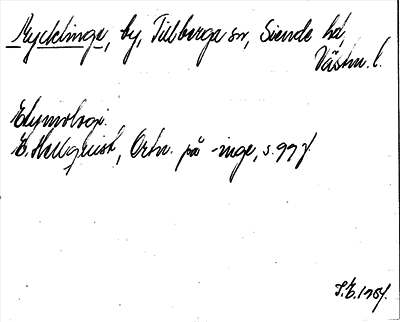 Mycklinge, by, Tillberga sn, Siende hd,
Västm. l.
Etymologi.
E. Hellquist, Ortn. på -inge, s. 99 f.
S.E. 1954.